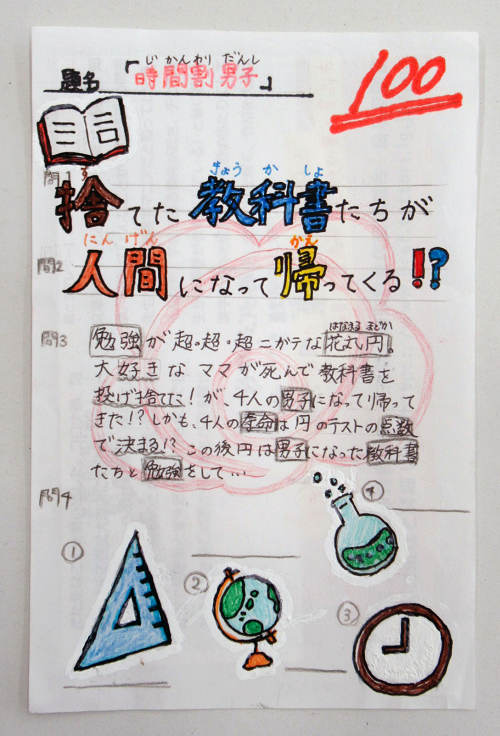 題名 「時間割男子」
じかんわり だんし
100
問1
す きょう か しょ
捨てた教科書たちが
にん げん かえ
問2
人間になって帰ってくる!?
問3
はなまる まどか
勉強が超。超。超ニガテな花丸円。
大好きなママが死んで教科書を
投げ捨てた!が、4人の男子になって帰って
きた!?しかも、4人の寿命は円のテストの点数
で決まる!?この後円は男子になった教科書
たちと勉強をして…
問4
①
②
③
④